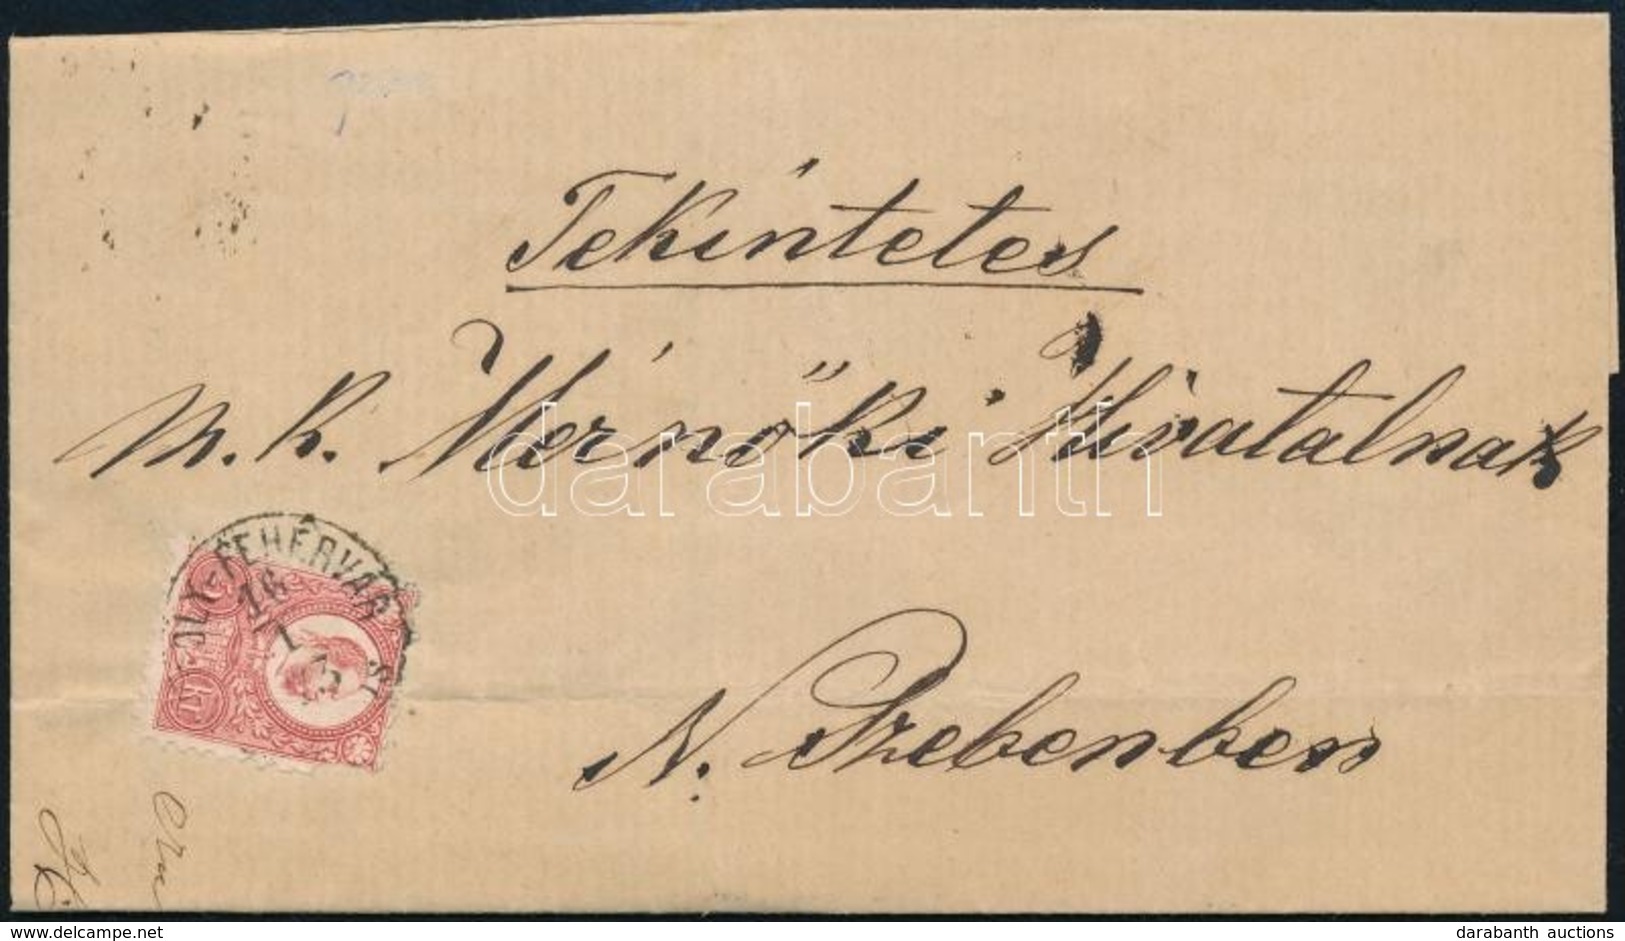 Tekintetes
m. k. Mérnöki Hivatalnak
N. Szebenben
OLY-FEHÉRVÁR
16
1
Kr
darabanth
oldthing.net
darabanth auctions